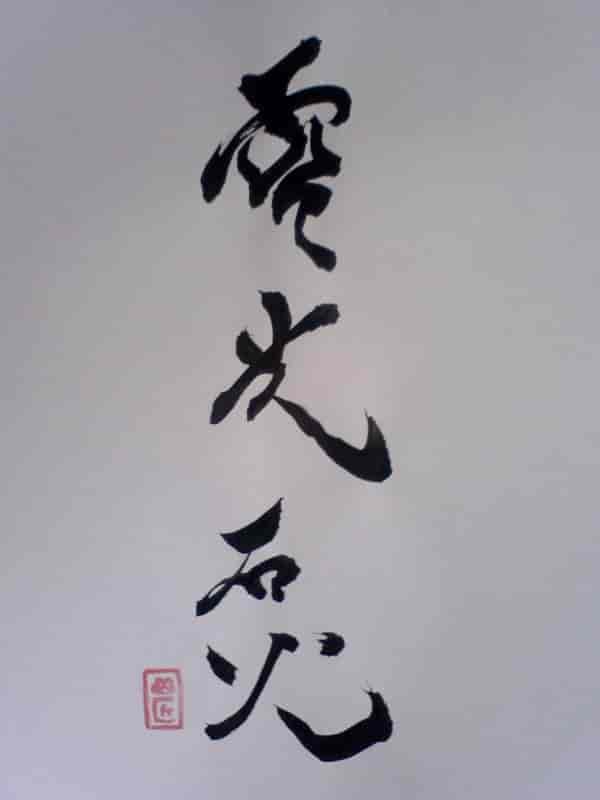 電光石火